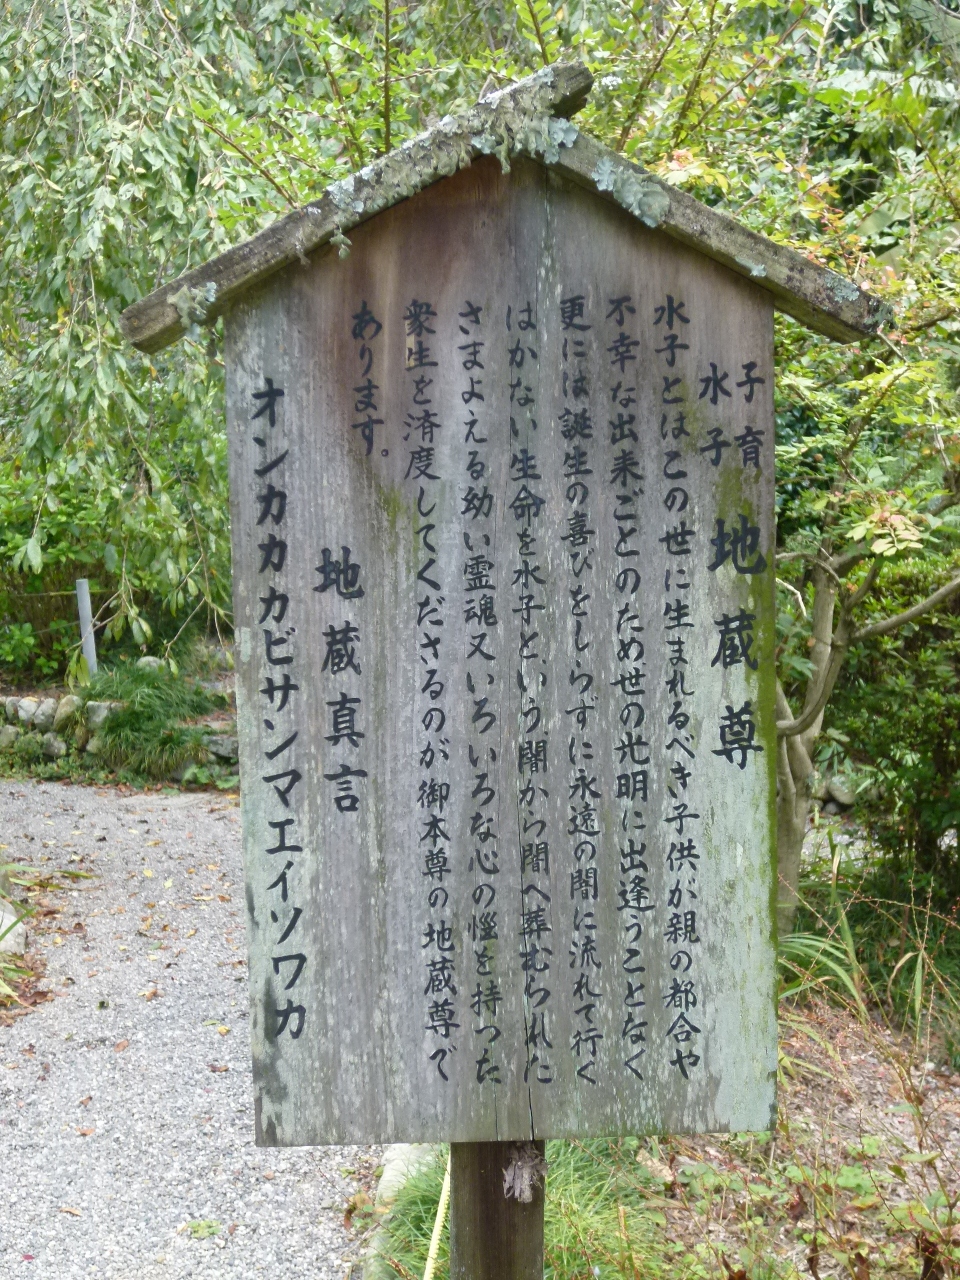 子育
水子
地蔵尊
水子とはこの世に生まれるべき子供が親の都合や
不幸な出来ごとのため、世の光明に出逢うことなく
更には誕生の喜びをしらずに永遠の闇に流れて行く
はかない生命を水子という、闇から闇へ葬むられた
さまよえる幼い霊魂又いろいろな心の惱を持つた
衆生を済度してくださるのが御本尊の地蔵尊で
あります。
地蔵真言
オンカカカビサンマエイソワカ